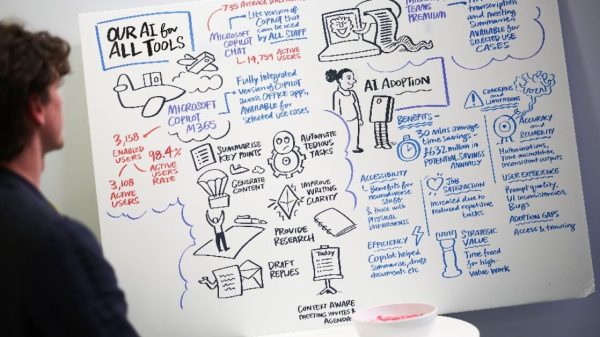 OUR AI for
ALL TOOLS
735 AVERAGE
MICROSOFT
COPILOT
CHAT
Lite version of
COPILOT that
can be used
by ALL STAFF
14,759 ACTIVE
USERS
TEAMS
PREMIUM
Transcription
and meeting
Summaries
AVAILABLE for
SELECTED USE
CASES
MICROSOFT
COPILOT
M365
Fully integrated
version of COPILOT
across OFFICE apps,
AVAILABLE for
selected use cases
3,158
ENABLED
USERS
98.4%
ACTIVE
USERS
RATE
3,108
ACTIVE
USERS
SUMMARISE
KEY POINTS
AUTOMATE
TEDIOUS
TASKS
GENERATE
CONTENT
IMPROVE
WRITING
CLARITY
PROVIDE
RESEARCH
DRAFT
REPLIES
Today
CONTEXT AWARE
MEETING INVITES &
AGENDA
AI ADOPTION
BENEFITS
30 mins average
time savings -
£632 million in
POTENTIAL SAVINGS
ANNUALLY
ACCESSIBILITY
Benefits for
neurodiverse
staff
& those with
PHYSICAL
IMPAIRMENTS
JOB
SATISFACTION
Increased due to
reduced repetitive
tasks
EFFICIENCY
Copilot helped
Summarise, draft
documents etc
STRATEGIC
VALUE
Time freed for
high-
Value work
CONCERNS
and
LIMITATIONS
ACCURACY
and
RELIABILITY
Hallucinations,
inconsistent outputs
USER EXPERIENCE
Prompt quality,
UI inconsistencies,
Bugs
ADOPTION GAPS
Access & training